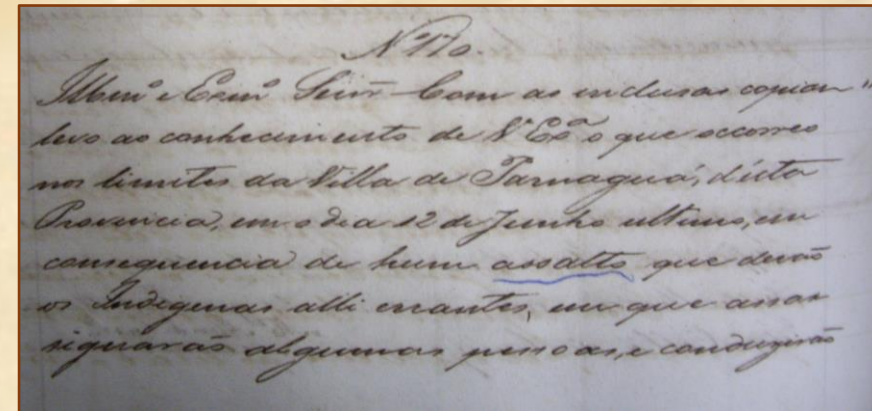 Nº 170.
Illmº e Exmº Senr. Com as inclusas copias
levo ao conhecimento de V. Exª o que occorreo
nos limites da Villa de Parnaguá, d'esta
Provincia, em o dia 12 de Junho ultimo, em
consequencia de hum assalto que derão
os Indigenas alli errantes, em que assas
signarão algumas pessoas, e conduzirão